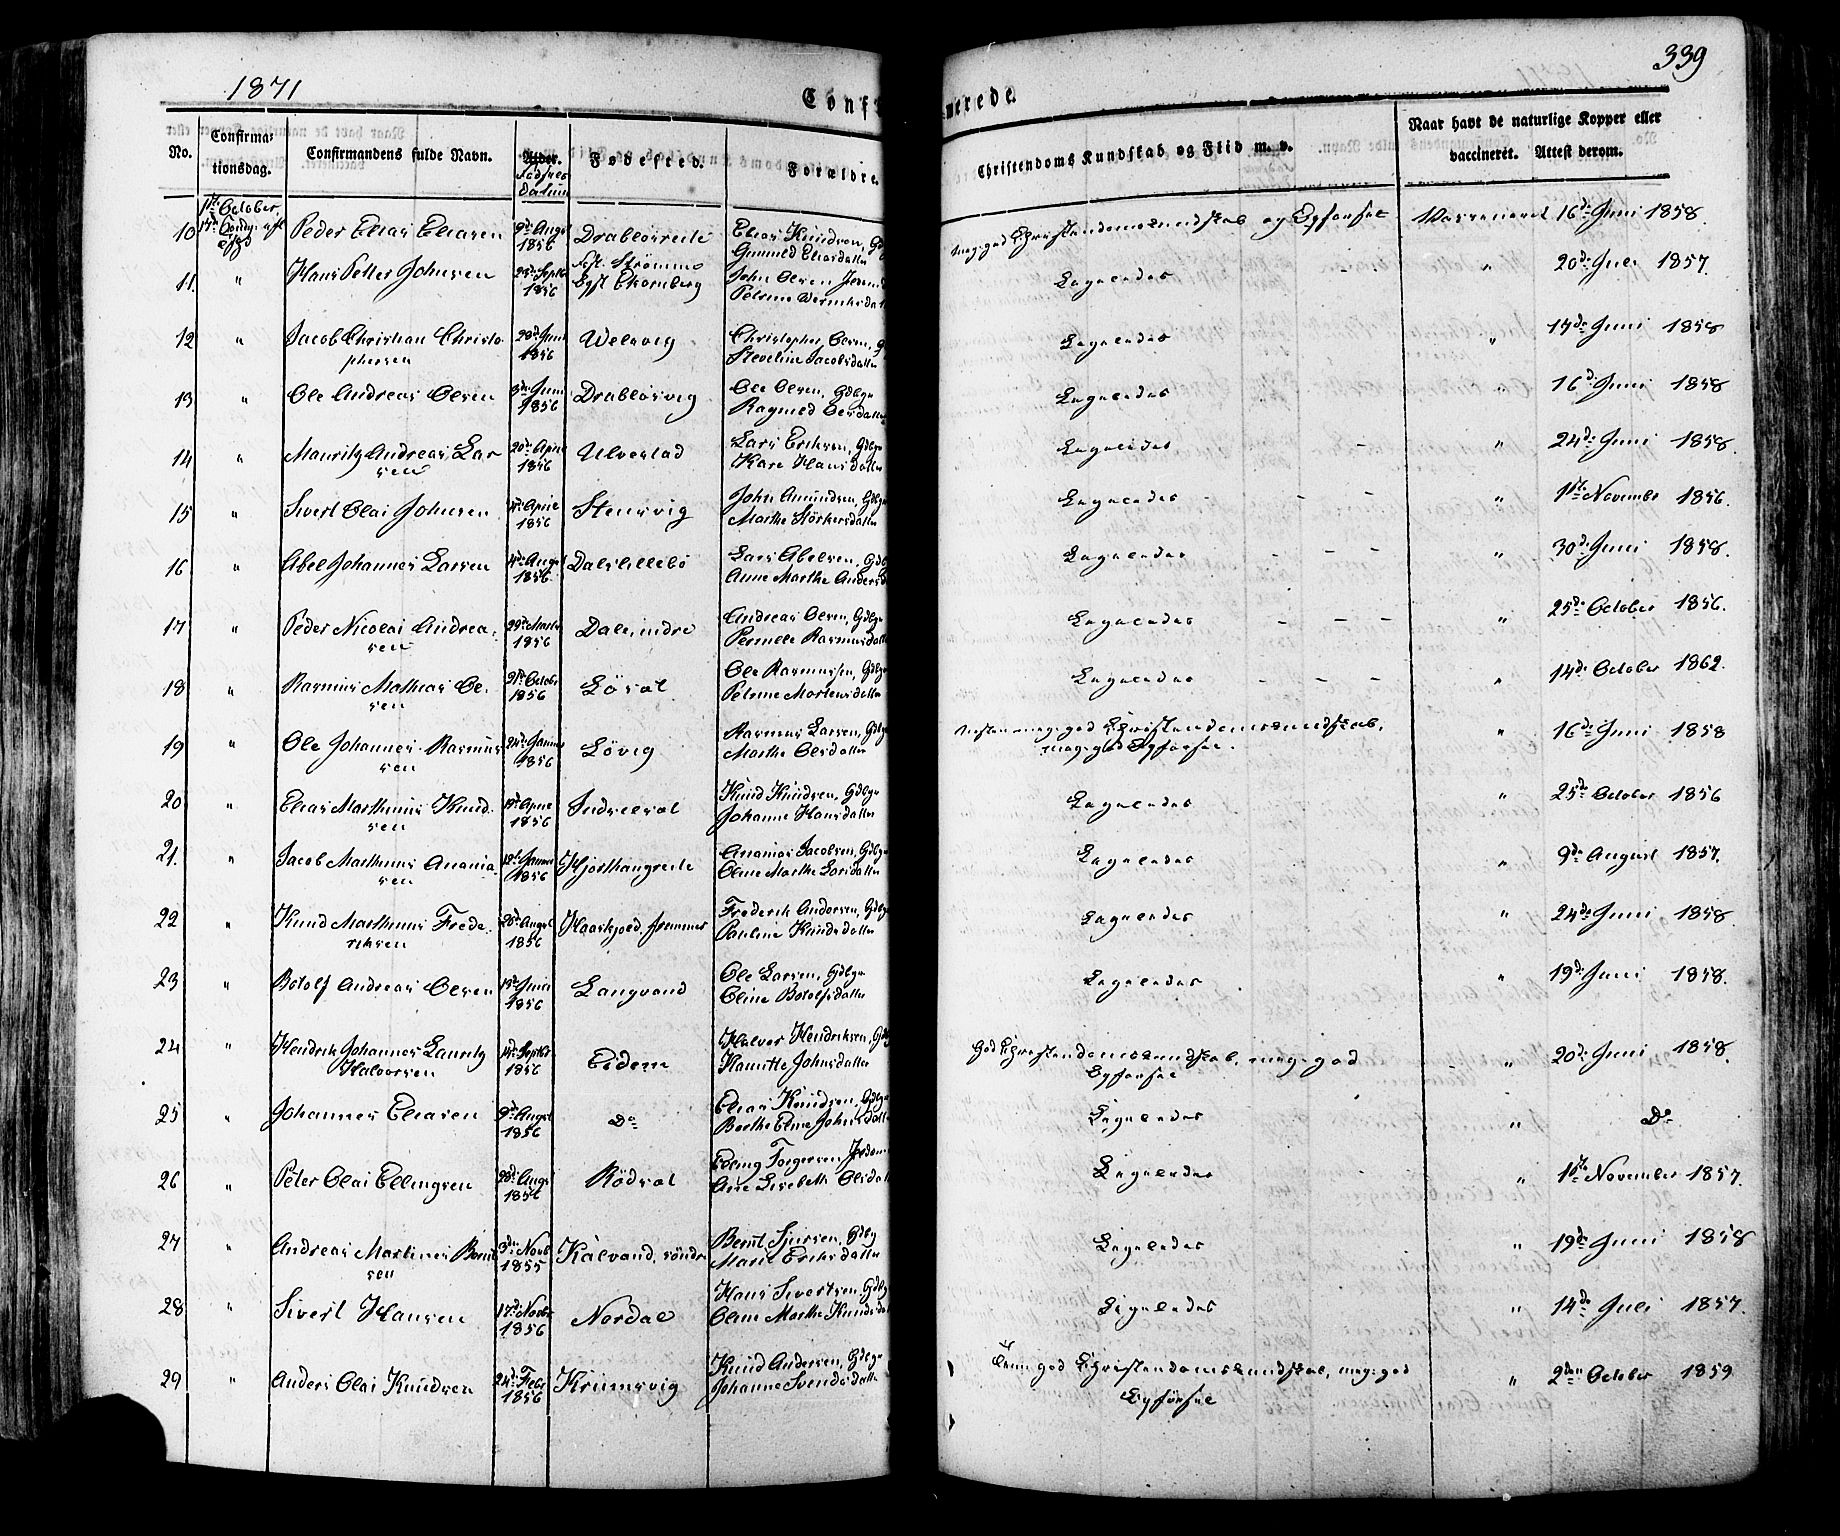 1871
339
Conf
merede.
No.
Confirma-
tionsdag.
Confirmandens fulde Navn.
Alder.
Fødsels
datum
Fødested.
Forældre.
Christendoms Kundskab og Flid m. v.
Naar havt de naturlige Kopper eller
vaccineret. Attest derom.
1ste October,
10 Peder Elias Eliasen 9de Augst 1856 Drabløsreité Elias Knudsen, G
Gunnild Eliasdatter
meg. god Christendomskundskab og Opførsel Vaccineret 16de Juni 1858.
11. " Hans Petter Johnsen 25de Septbr 1856 Strømme Egst Ekornberg John Olsen
Petrine
Ligeledes " 20de Juli 1857.
12 " Jacob Christian Christo
phersen 28de Juni 1856 Welsvig Christopher Olsen, G
Steveline Jacobsdatter
Ligeledes " 14de Juni 1858
13 " Ole Andreas Olsen 3de Juni 1856 Drabløsvig Ole Olsen, Gdbgr
Ragnild Olsdatter
Ligeledes " 16de Juni 1858
14 " Mauritz Andreas Lar
sen 20de April 1856 Ulvestad Lars Eriksen, Gdbgr
Kare Hansdatter
Ligeledes " 24de Juni 1858.
15 " Sivert Olai Johnsen 4de April 1856 Stensvig John Amundsen, Gdbgr
Marthe Störkersdatter
Ligeledes " 1ste November 1856.
16 " Abel Johannes Larsen 4de Augst 1856. Dalslillebö Lars Abelsen, Gdbg
Anne Marthe Andersd
Ligeledes " 30de Juni 1858.
17 " Peder Nicolai Andrea-
sen 29de Marts 1856 Dale indre Andreas Olsen, Gdbgr
Pernele Rasmusdatter
Ligeledes " 25de October 1856.
18 " Rasmus Mathias Ol-
sen 21de Octobr 1856 Løset Ole Rasmussen, Gdbgr
Petrine Mortensdatter
Ligeledes " 14de October 1862.
19 " Ole Johannes Rasmus
sen 24de Januar 1856 Lövig Rasmus Larsen, Gdbgr
Marthe Olsdatter
Næsten meg. god Christendomskundskab,
meg. god Opførsel. " 16de Juni 1858
20 " Elias Marthinus Knud-
sen April 1856 Indreeset Knud Knudsen, Gdbgr
Johanne Hansdatter
Ligeledes " 25de October 1856
21. " Jacob Marthinus Anania-
sen Januar 1856 Hjorthaugreite Ananias Jacobsen, Gdbgr
Oline Marthe Larsdatter
Ligeledes " 9de August 1857.
22 " Knud Marthinus Frede-
riksen 28de Augst 1856 Haaskjold, Frederik Andersen, Gdbgr
Pauline Knudsdatter
Ligeledes " 24de Juni 1858
23 " Botolf Andreas Olsen 13de Juni 1856 Langvand Ole Larsen, Gdbgr
Eline Botolfsdatter
Ligeledes " 19de Juni 1858.
24 " Hendrik Johannes Lauritz
Halvorsen 14de Septbr 1856 Eidem Halvor Hendriksen, Gdb
Johnsdatter
God Christendomskundskab, meg. god
Opførsel " 20de Juni 1858.
25 " Johannes Eliasen 9de Augst 1856 Do Elias Knudsen, Gdbgr
Berthe Eline Johnsdatter
Ligeledes " Do
26 " Peter Olai Ellingsen 28de Augst 1856 Rödset Elling Torgersen
Ane Lisebeth Olsdat
Ligeledes " 1ste November 1857.
27 " Andreas Martinus Bernt
sen 3de Novb 1855 Kalvand, söndre Bernt Sjursen, Gdbg
Marit Eriksdatter
Ligeledes " 19de Juni 1858
28 " Sivert Hansen 17de Novbr 1856 Nordal Hans Sivertsen, Gdbg
Oline Marthe Knudsdat
Ligeledes " 14de Juli 1857.
29 " Anders Olai Knudsen 24de Febr 1856 Krumsvig Knud Andersen, Gdbgr
Johanne Svendsdatter
Temm. god Christendomskundskab, meg. god
Opførsel " 2den October 1859